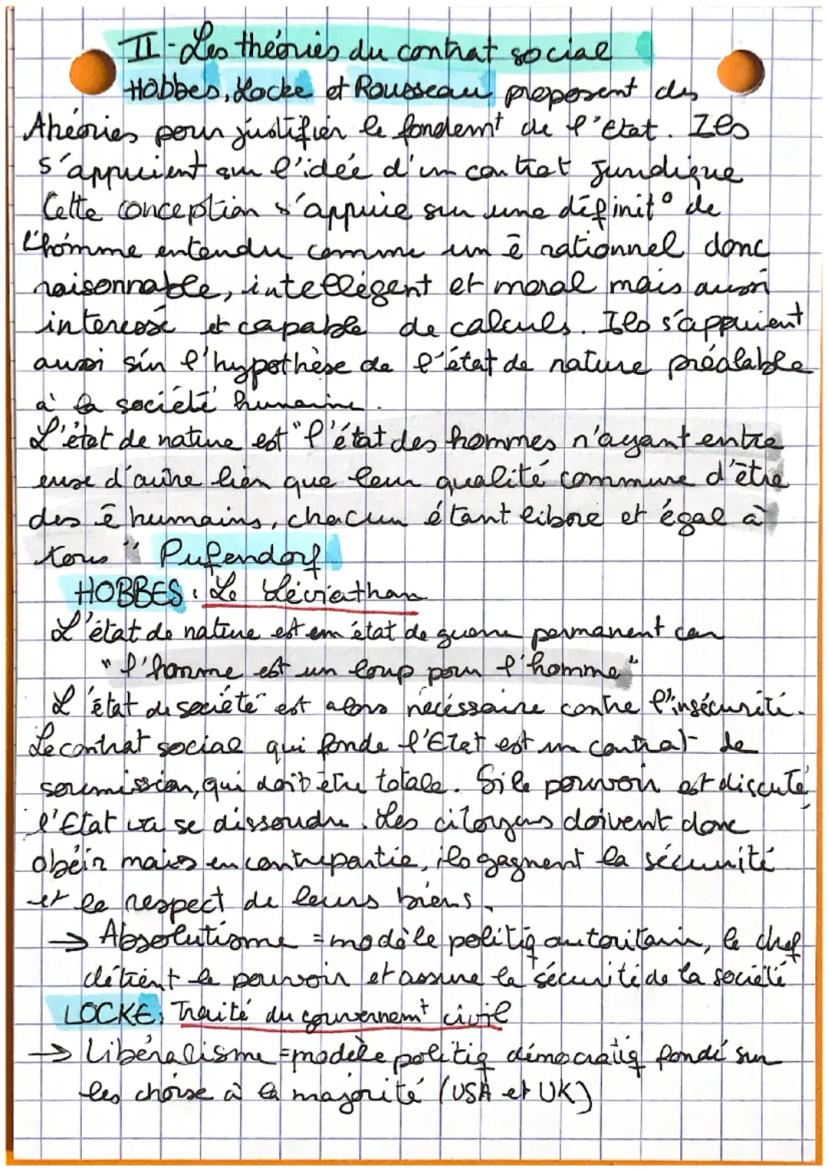 II - Les théories du contrat social
Hobbes, Locke et Rousseau proposent des
théories pour justifier le fondemt de l'Etat. Ils
s'appuient sur l'idée d'un contrat juridique
Cette conception s'appuie sur une définit° de
l'homme entendu comme un ê rationnel donc
raisonnable, intelligent et moral mais aussi
interessé et capable de calculs. Ils s'appuient
aussi sur l'hypothèse de l'état de nature préalable
à la société humaine.
L'état de nature est "l'état des hommes n'ayant entre
eux d'autre lien que leur qualité commune d'être
des ê humains, chacun étant libre et égal à
tous" Pufendorf
HOBBES : Le Léviathan
L'état de nature est un état de guerre permanent car
"l'homme est un loup pour l'homme"
L'état de société est alors nécessaire contre l'insécurité.
Le contrat social qui fonde l'Etat est un contrat de
soumission, qui doit être totale. Si le pouvoir est discuté,
l'Etat va se dissoudre. Les citoyens doivent donc
obéir mais en contrepartie, ils gagnent la sécurité
et le respect de leurs biens.
→ Absolutisme = modèle politiq autoritaire, le chef
détient le pouvoir et assure la sécurité de la société
LOCKE : Traité du gouvernemt civil
→ Libéralisme = modèle politiq démocratiq fondé sur
les choise à la majorité (USA et UK)